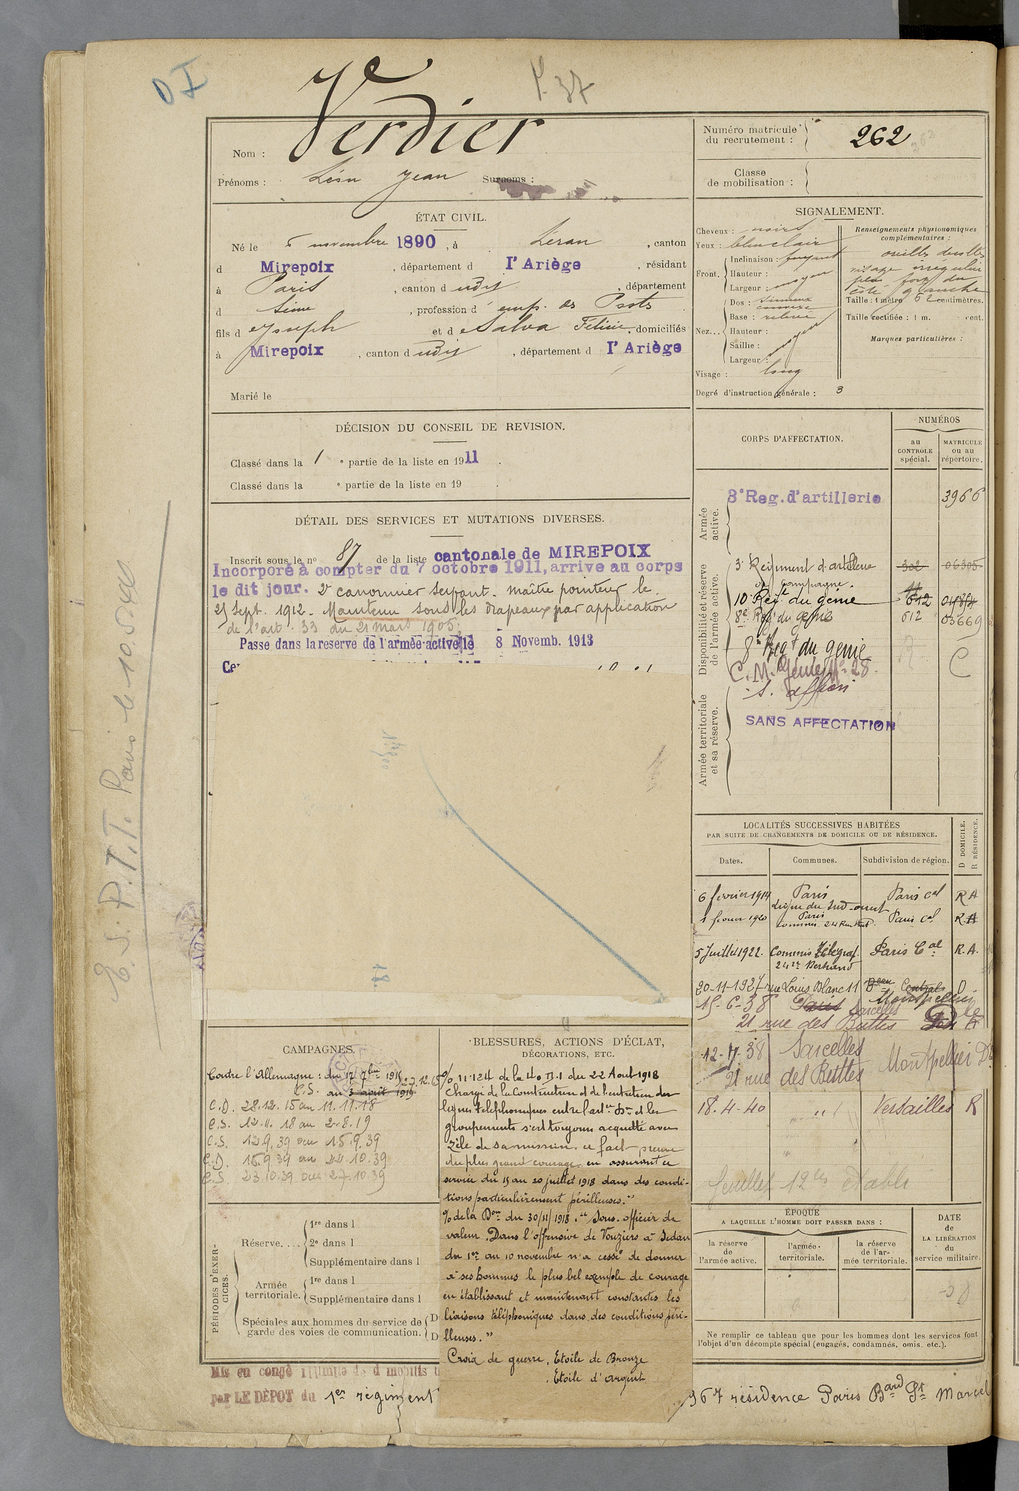 D I
P. 37
Verdier
Nom :
Prénoms : Léon Jean Surnoms :
Numéro matricule du recrutement : 262
Classe de mobilisation :
ÉTAT CIVIL.
Né le 5 novembre 1890, à Léran, canton
d Mirepoix, département d l'Ariège, résidant
à Paris, canton d udit, département
d Seine, profession d emp. des Postes
fils d Joseph et d Salva domiciliés
à Mirepoix, canton d udit, département d l'Ariège
Marié le
SIGNALEMENT.
Cheveux : noirs
Yeux : bleu clair
Front. Inclinaison : fuyant
Hauteur : moyen
Largeur :
Nez... Dos : sinueux
Base : relevée
Hauteur : moyen
Saillie :
Largeur :
Visage : long
Degré d'instruction générale : 3
Renseignements physionomiques complémentaires :
visage irrégulier
peu fort du
côté gauche
Taille : 1 mètre 62 centimètres.
Taille rectifiée : 1 m. cent.
Marques particulières :
DÉCISION DU CONSEIL DE REVISION.
Classé dans la 1e partie de la liste en 1911.
Classé dans la e partie de la liste en 19 .
DÉTAIL DES SERVICES ET MUTATIONS DIVERSES.
Inscrit sous le no 87 de la liste cantonale de MIREPOIX
Incorporé à compter du 7 octobre 1911, arrivé au corps
le dit jour. 2e canonnier servant. maître pointeur le
25 Sept. 1912. Maintenu sous les drapeaux par application
de l'art. 33 du 21 mars 1905.
Passé dans la réserve de l'armée active le 8 Novemb. 1913
CORPS D'AFFECTATION.
NUMÉROS
au CONTROLE spécial.
MATRICULE ou au répertoire.
Armée active.
8e Reg. d'artillerie 3966
Disponibilité et réserve de l'armée active.
3e Régiment d'artillerie
de campagne.
10e Reg. du génie 612
8e Regt du génie 612 03669
8e Regt du génie
C. M. Génie No 28. C
S. affon
Armée territoriale et sa réserve.
SANS AFFECTATION
E. S. P.T.T. Paris le
LOCALITÉS SUCCESSIVES HABITÉES
PAR SUITE DE CHANGEMENTS DE DOMICILE OU DE RÉSIDENCE.
Dates. Communes. Subdivision de région. D DOMICILE. R RÉSIDENCE.
6 février 1914 Paris Paris cal R A
ligne du Sud-ouest
1 février 1920 Paris Paris cal R A
5 Juillet 1922. Commis Télégraf. Paris Cal R.A.
30-11-1927 rue Louis Blanc 11 Centrale D
15-6-38 Paris Sarcelles Montpellier
21 rue des Buttes
12-7-38 Sarcelles Montpellier
21 rue des Buttes
18.4-40 " Versailles R
feuillet établi
CAMPAGNES.
Contre l'Allemagne : du
C.S. au 3 avril
C.D. 28.12.15 au 11.11.18
C.S. 12.11.18 au 2.8.19
C.S. 12.9.39 au 15.9.39
C.D. 16.9.39 au 22.10.39
C.S. 23.10.39 au 27.10.39
BLESSURES, ACTIONS D'ÉCLAT,
DÉCORATIONS, ETC.
O/o 11.124 de la 40 D.I du 22 Aout 1918
Chargé de la Construction et de l'entretien des
lignes téléphoniques entre l'artie Dre et les
groupements s'est toujours acquitté avec
Zèle de sa mission, a fait preuve
du plus grand courage en assurant ce
service du 15 au 20 juillet 1918 dans des condi-
tions particulièrement périlleuses."
O/ de la Bde du 30/11/1918. "Sous-officier de
valeur. Dans l'offensive de Vouziers à Sedan
du 1er au 10 novembre n'a cessé de donner
à ses hommes le plus bel exemple de courage
en établissant et maintenant constantes les
liaisons téléphoniques dans des conditions péri-
lleuses."
Croix de guerre, Etoile de Bronze
Etoile d'argent
PÉRIODES D'EXERCICES.
Réserve.... 1re dans l
2e dans l
Supplémentaire dans l
Armée territoriale. 1re dans l
Supplémentaire dans l
Spéciales aux hommes du service de garde des voies de communication. D
D
ÉPOQUE
A LAQUELLE L'HOMME DOIT PASSER DANS :
la réserve de l'armée active.
l'armée territoriale.
la réserve de l'armée territoriale.
DATE de LA LIBÉRATION du service militaire.
Ne remplir ce tableau que pour les hommes dont les services font
l'objet d'un décompte spécial (engagés, condamnés, omis, etc.).
Mis en congé illimité de démobilis
par LE DÉPOT du 1er régiment
967 résidence Paris Bard St Marcel